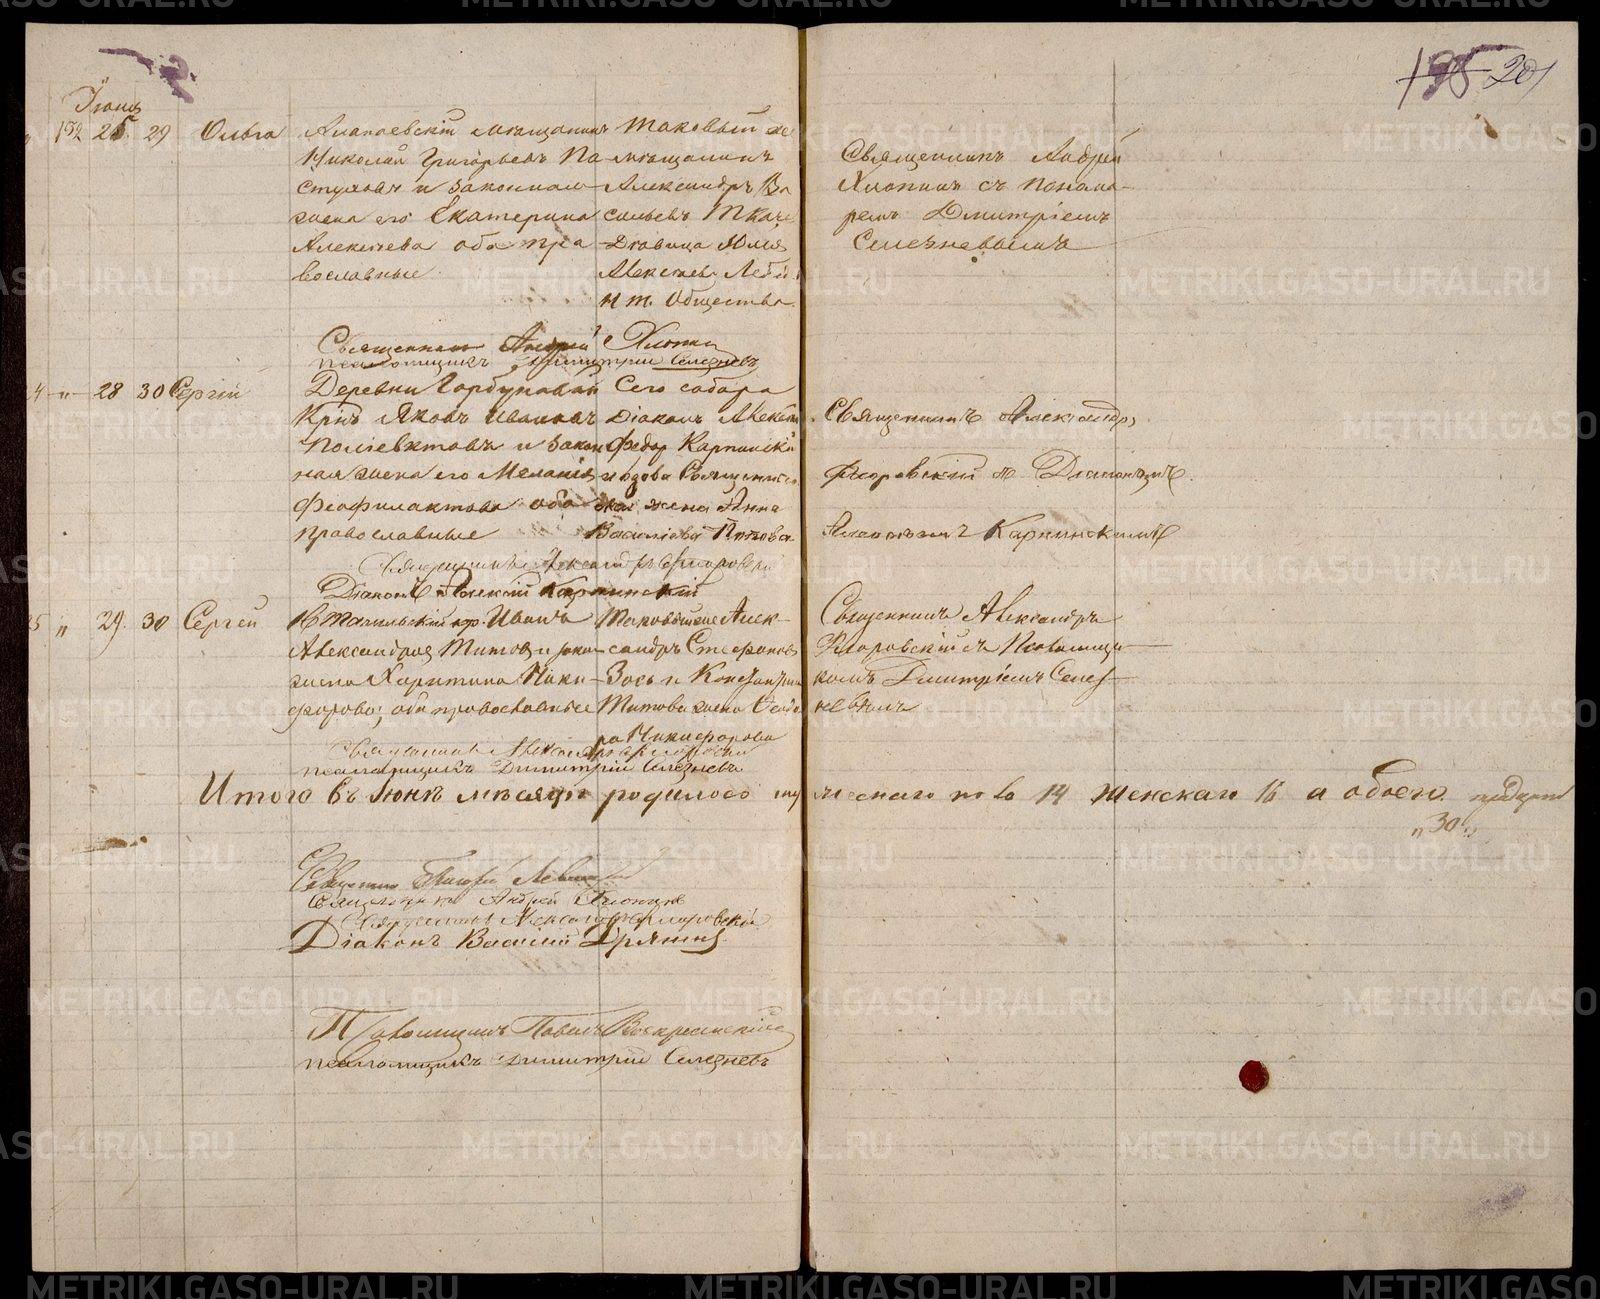 195 201
Іюня
" 152 25. 29 Ольга
Алапаевскій мѣщанинъ
Николай Григорьевъ Па
стуховъ и законная
жена его Екатерина
Алексѣева оба пра
вославные.
Таковый же
мѣщанинъ
Александръ Ва
сильевъ Ткаче
Дѣвица Юлія
Алексѣева
Общества.
Священникъ Андрей
Хлопинъ съ понома-
ремъ Димитріемъ
Селезневымъ
Священникъ Андрей Хлопинъ
псаломщикъ Димитрій Селезневъ
4 " 28 30 Сергій
Деревни Горбуновой
Крнъ Яковъ Ивановъ
Поліевктовъ и закон
ная жена его Меланія
Феофилактова оба
православные
Сего собора
Діаконъ Алексѣй
Федор Карпинскій
и вдова Священниче
ская жена Анна
Василіева
Священникъ Александръ
Флоровскій съ Діакономъ
Алексѣемъ Карпинскимъ
Священникъ Александръ Флоровскій
Діаконъ Алексій Карпинскій
5 " 29. 30 Сергей
Н Тагильскій кр. Иванъ
Александровъ Титовъ и закон
жена Харитина Ники-
форова; оба православные
Таковые же Алек-
сандръ Стефановъ
Зось и Констант
Титова жена Ѳеодо
ра Никифорова
Священникъ Александръ
Флоровскій съ Псаломщи-
комъ Димитріемъ Селез-
невымъ
Священникъ Александръ Флоровскій
псаломщикъ Димитрій Селезневъ
Итого въ Іюнѣ мѣсяцѣ родилось мужескаго пола 14 женскаго 16 а обоего тридцать
"30"
Священникъ Левитскій
Священникъ Андрей Хлопинъ
Священникъ Александръ Флоровскій
Діаконъ Василій Дрягинъ
Псаломщикъ Павелъ Воскресенскій
псаломщикъ Димитрій Селезневъ
METRIKI.GASO-URAL.RU